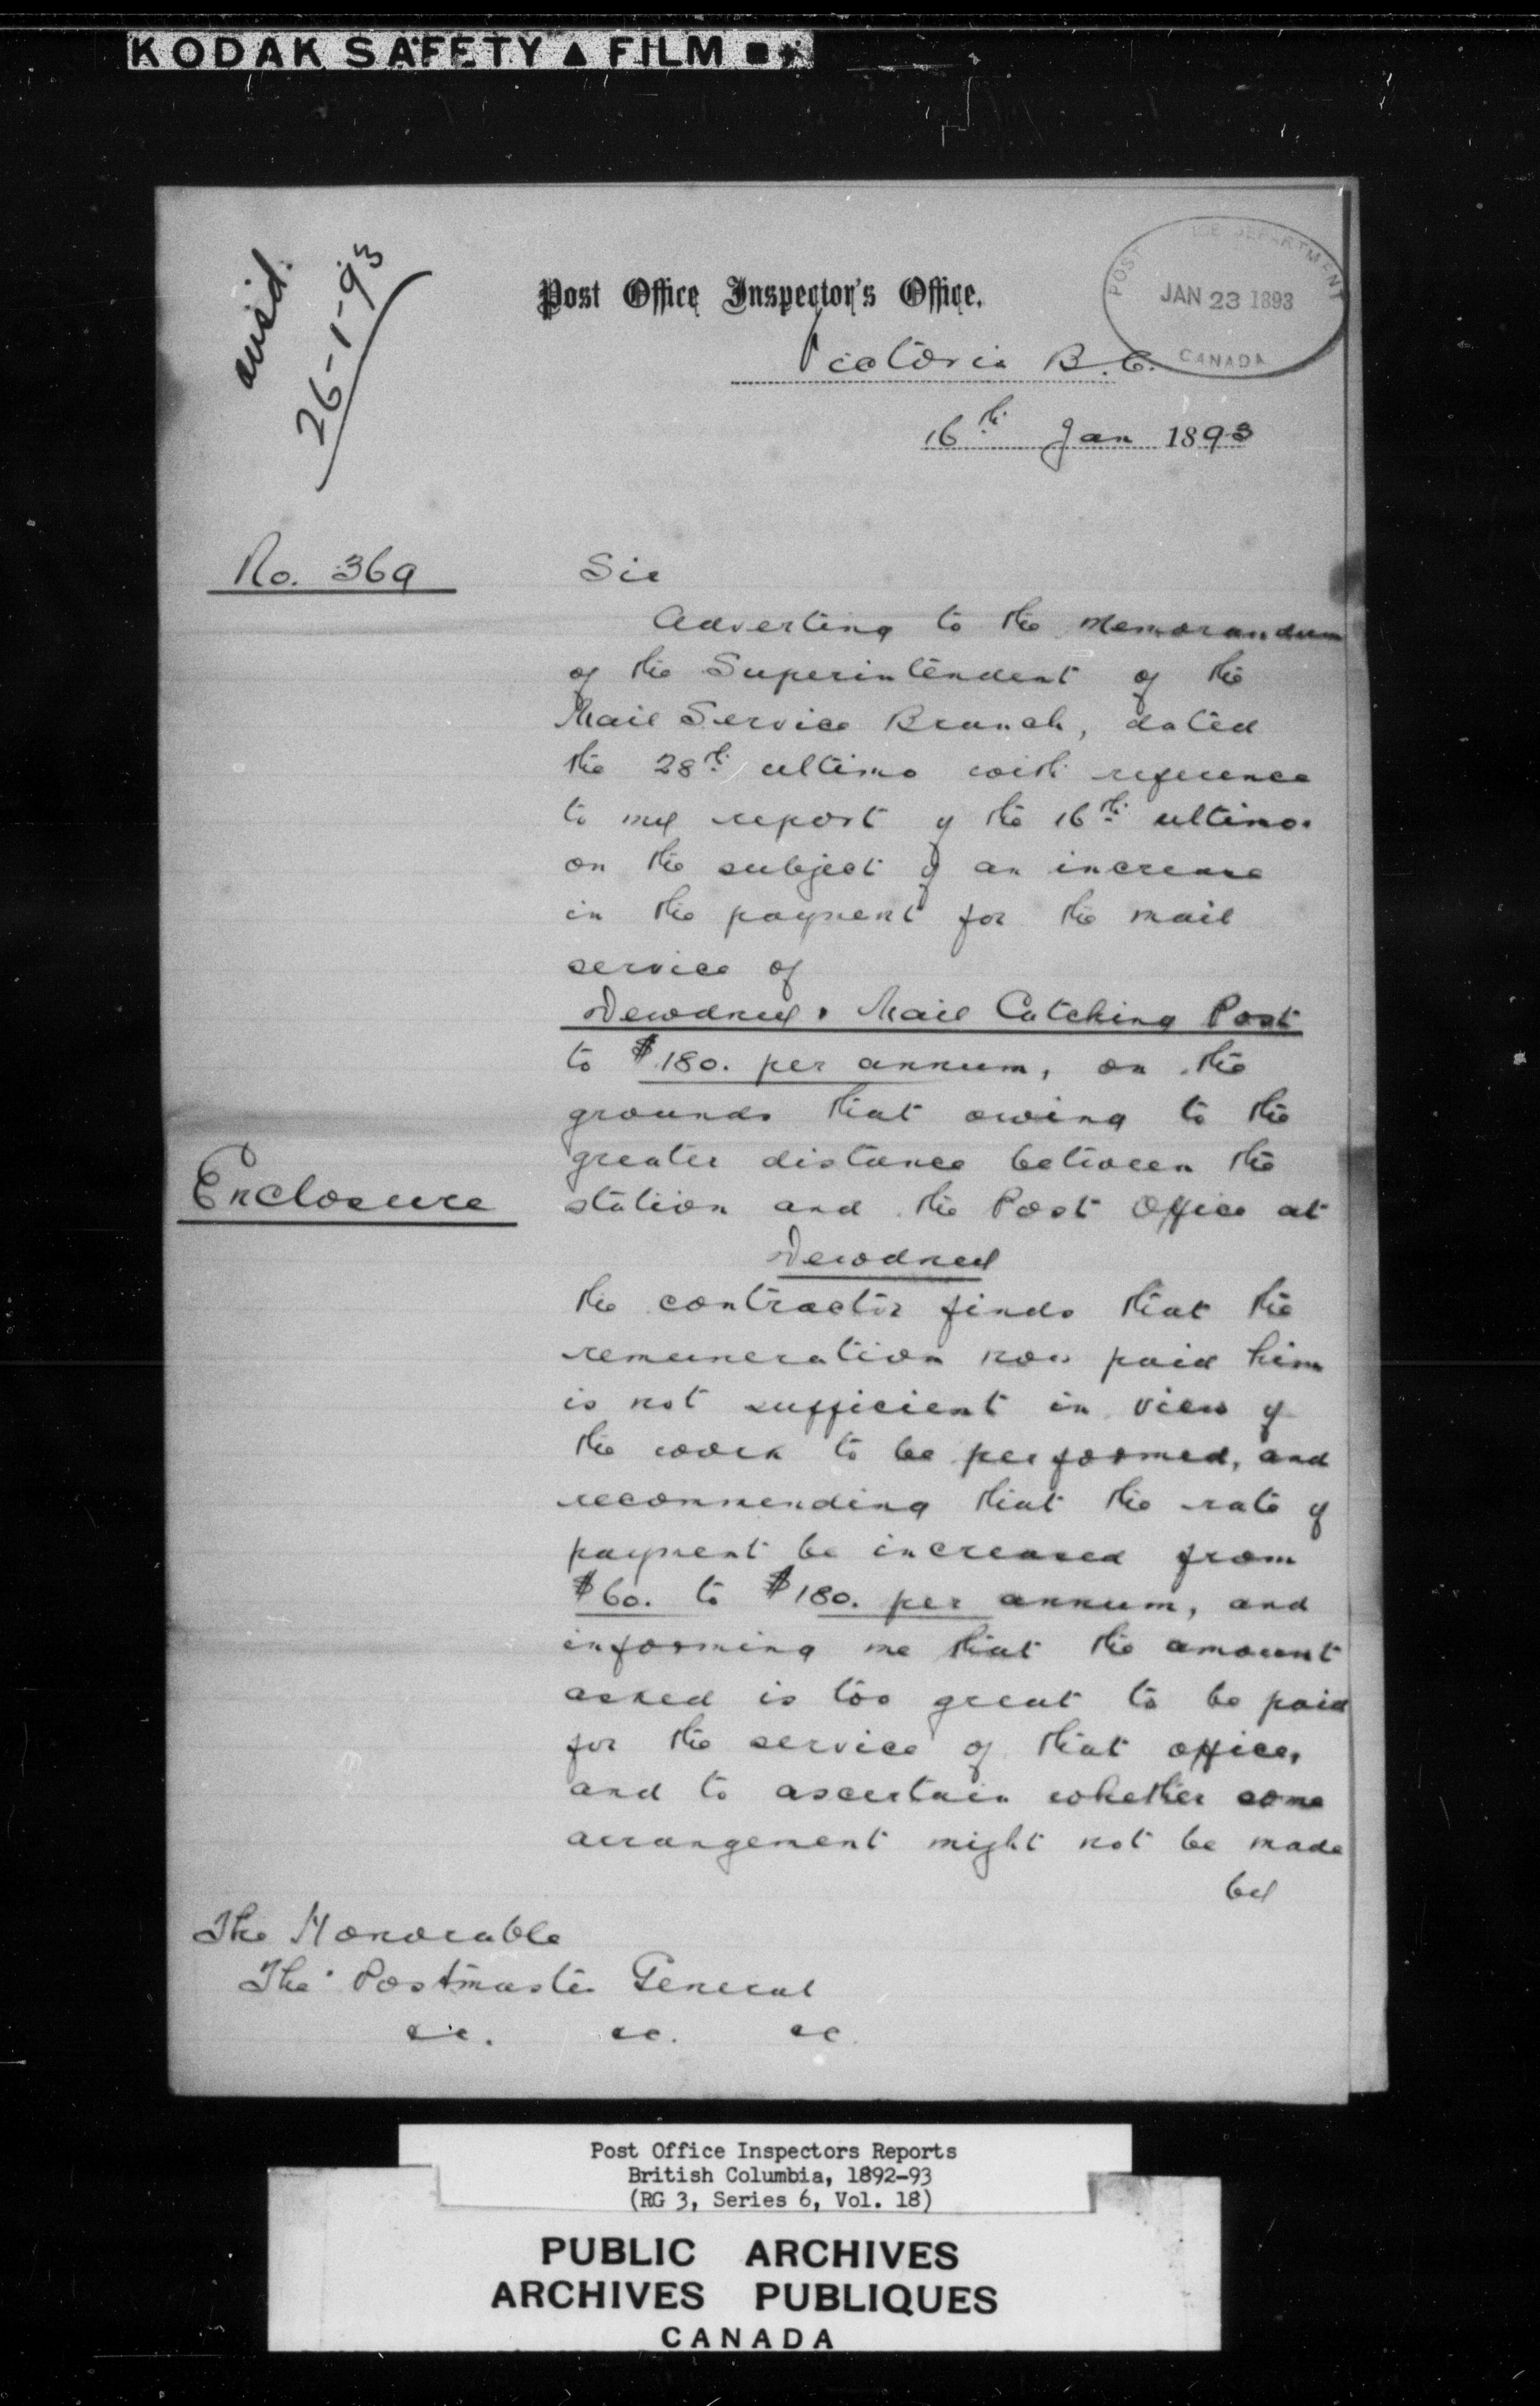 KODAK SAFETY ▲ FILM
26-1-93
Post Office Inspector's Office.
POST OFFICE DEPARTMENT
JAN 23 1893
CANADA
Victoria B.C.
16th Jan 1893
No. 369
Sir
Adverting to the Memorandum
of the Superintendent of the
Mail Service Branch, dated
the 28th ultimo with reference
to my report of the 16th ultimo.
on the subject of an increase
in the payment for the mail
service of
Dewdney & Mail Catching Post
to $180. per annum, on the
grounds that owing to the
greater distance between the
Enclosure
station and the Post Office at
Dewdney
the contractor finds that the
remuneration now paid him
is not sufficient in view of
the work to be performed, and
recommending that the rate of
payment be increased from
$60. to $180. per annum, and
informing me that the amount
asked is too great to be paid
for the service of that office,
and to ascertain whether some
arrangement might not be made
by
The Honorable
The Postmaster General
&c. &c. &c.
Post Office Inspectors Reports
British Columbia, 1892-93
(RG 3, Series 6, Vol. 18)
PUBLIC ARCHIVES
ARCHIVES PUBLIQUES
CANADA